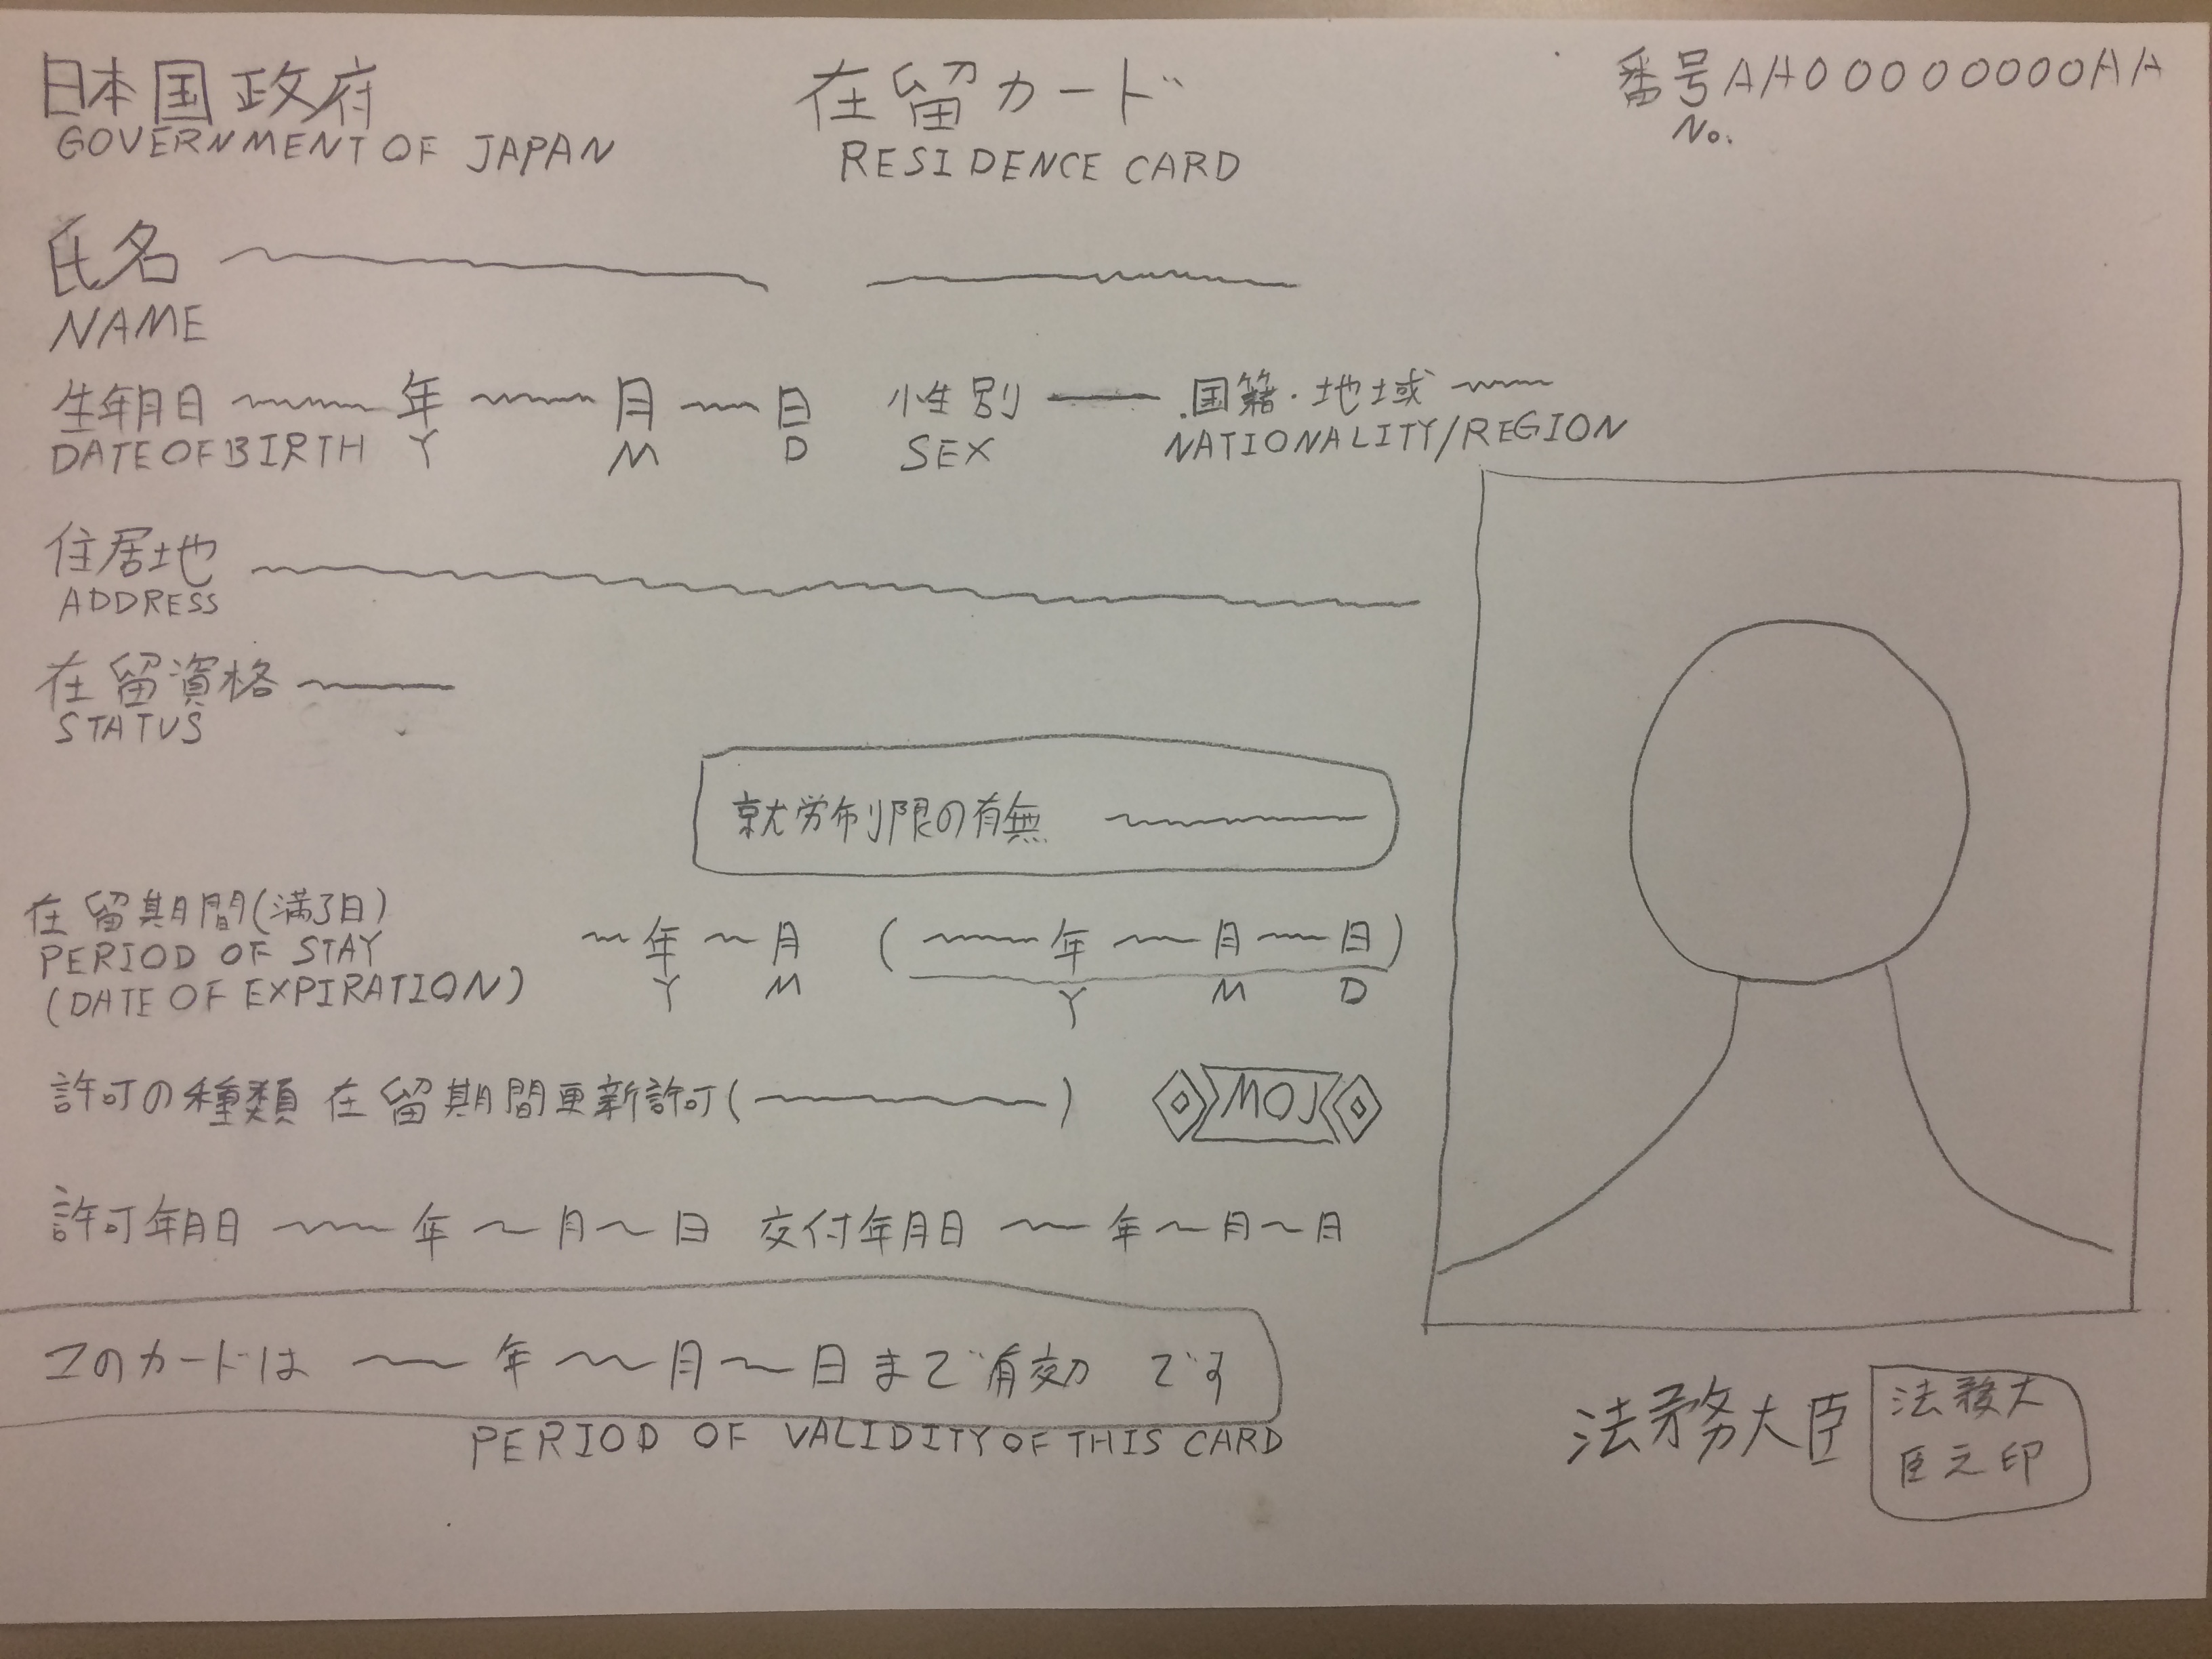 日本国政府 在留カード 番号AA00000000AA
GOVERNMENT OF JAPAN RESIDENCE CARD No.
氏名
NAME
生年月日 年 月 日 性別 国籍・地域
DATE OF BIRTH Y M D SEX NATIONALITY/REGION
住居地
ADDRESS
在留資格
STATUS
就労制限の有無
在留期間(満了日)
PERIOD OF STAY
(DATE OF EXPIRATION)
年 月 ( 年 月 日)
Y M Y M D
許可の種類 在留期間更新許可( ) MOJ
許可年月日 年 月 日 交付年月日 年 月 日
このカードは 年 月 日まで有効 です
PERIOD OF VALIDITY OF THIS CARD
法務大臣
法務大
臣之印